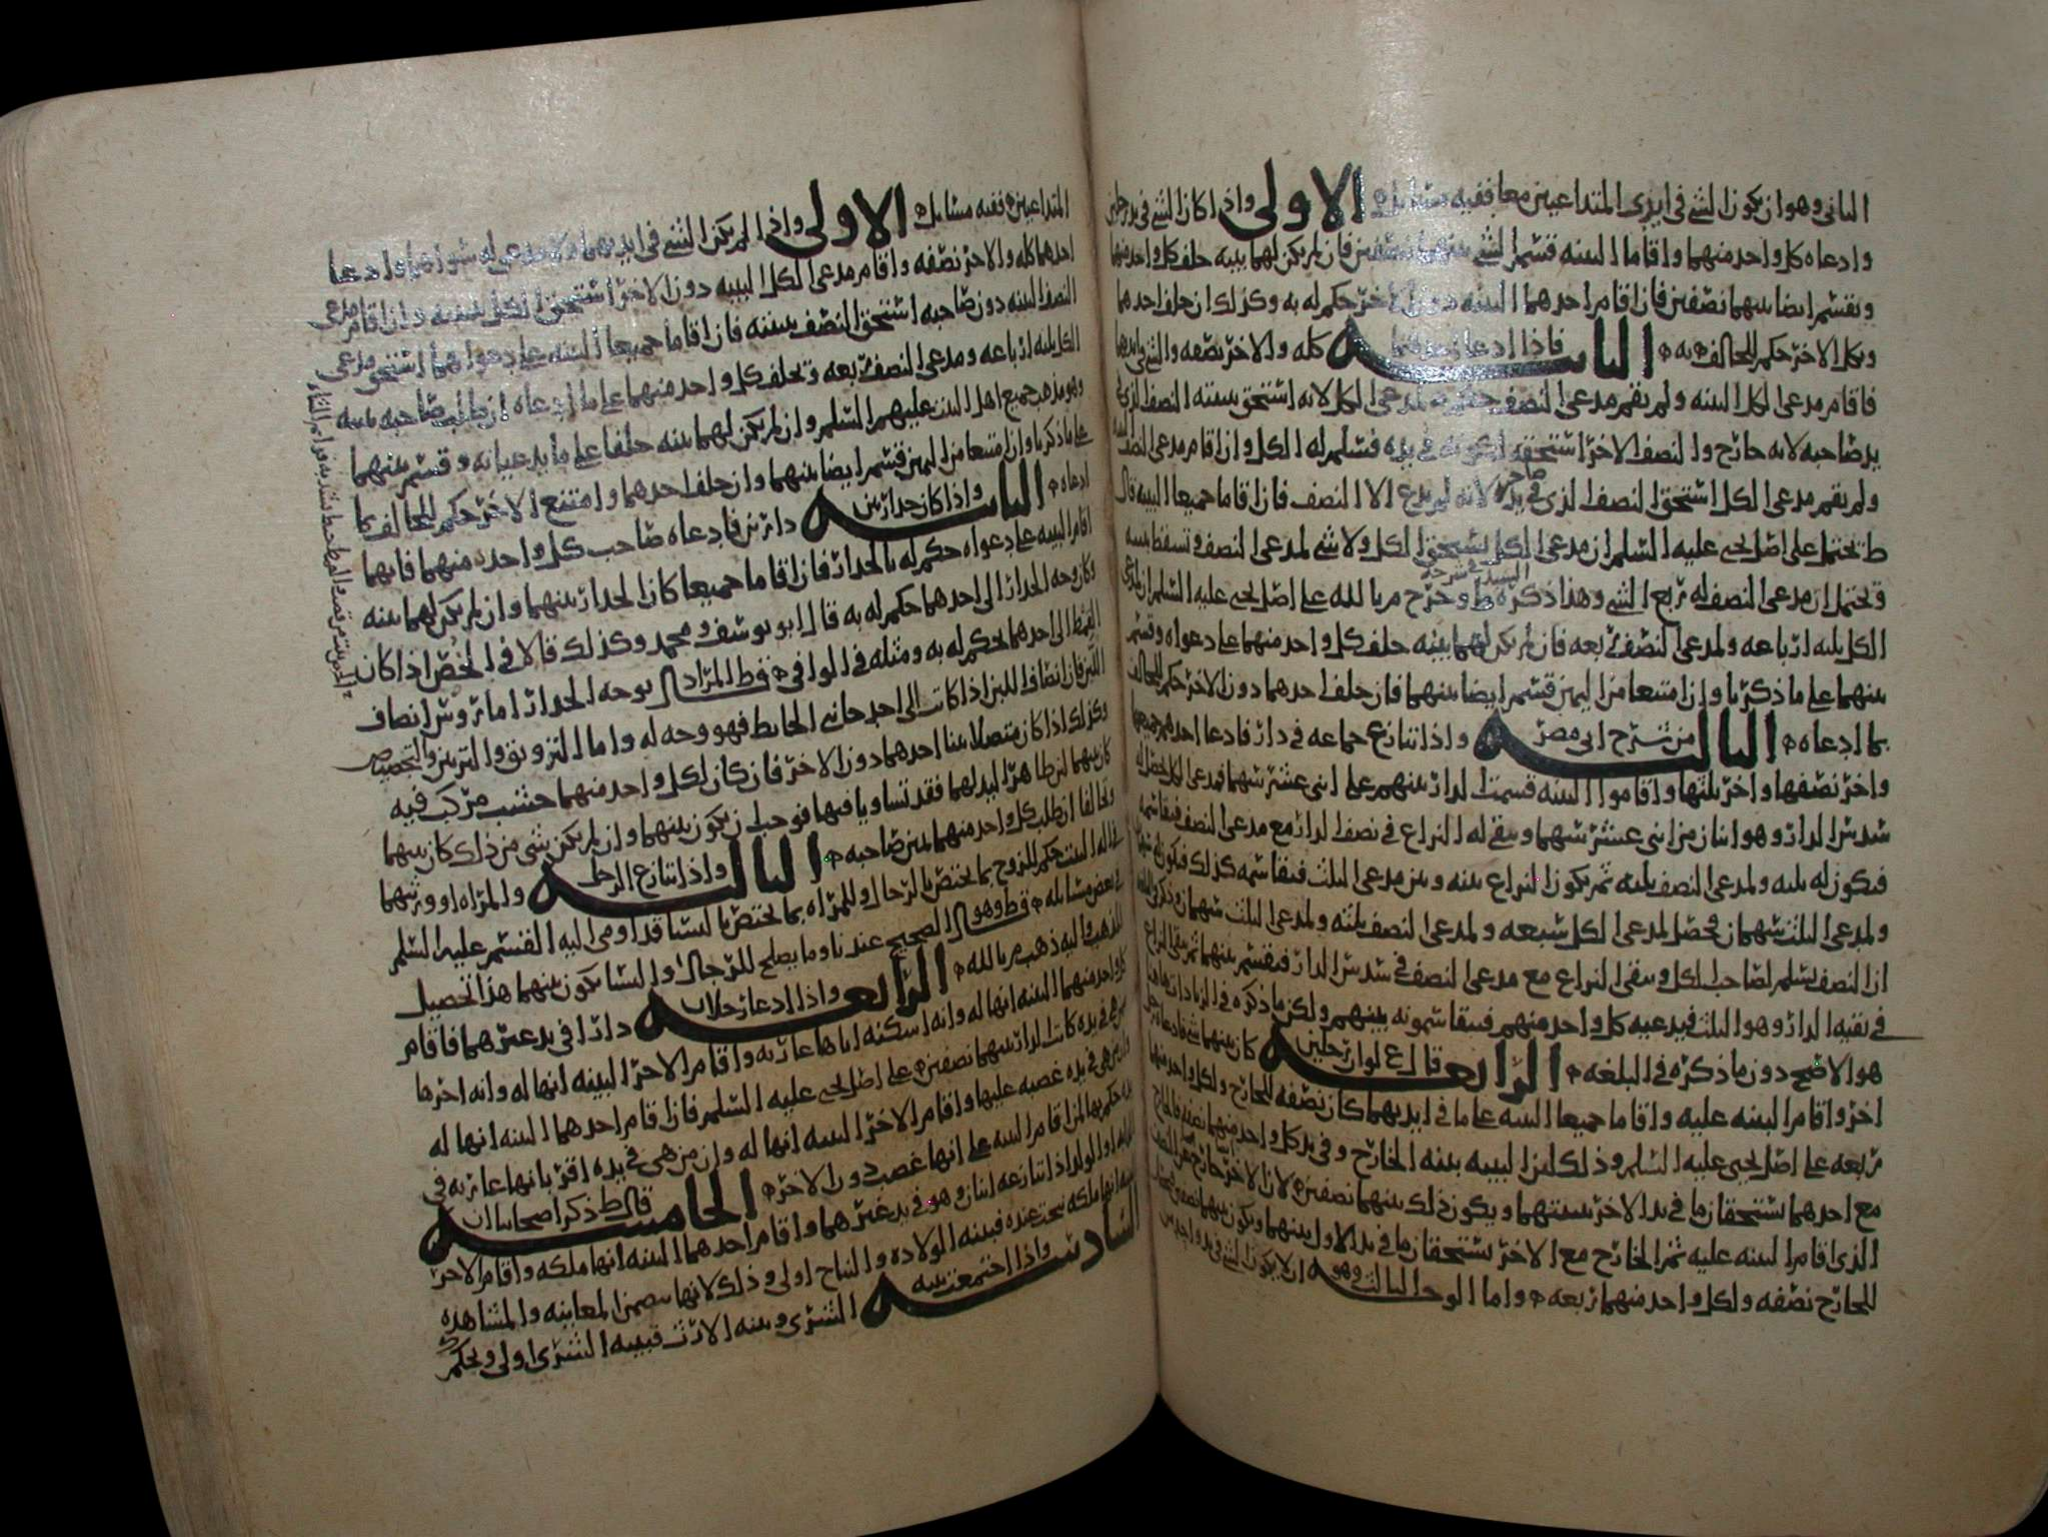 الثاني وهو ان يكون الشي في ايدي المتداعيين معا ففيه مسايل الاولى واذا كان الشي في يد رجلين
وادعاه كل واحد منهما واقاما البينه قسم الشي بينهما نصفين فان لم يكن لهما بينه حلف كل واحد منهما
ويقسم ايضا بينهما نصفين فان اقام احدهما البينه دون الاخر حكم له به وكذلك ان حلف احدهما
ونكل الاخر حكم للحالف به الثانيه فاذا ادعا احدهما كله والاخر نصفه والشي في ايديهما
فاقام مدعي الكل البينه ولم يقم مدعي النصف حكم به لمدعي الكل لانه استحق ببينته النصف الذي في
يد صاحبه لانه خارج والنصف الاخر استحقه لكونه في يده فسلم له الكل وان اقام مدعي النصف البينه
ولم يقم مدعي الكل استحق النصف الذي في يد صاحبه لانه لم يدع الا النصف فان اقاما جميعا البينه قال
ط يحتمل على اصل يحيى عليه السلم ان مدعي الكل يستحق الكل ولا شي لمدعي النصف وتسقط بينته
ويحتمل ان مدعي النصف له ربع الشي وهذا ذكره ط السيد في شرحه وخرج م بالله على اصل يحيى عليه السلم ان لمدعي
الكل ثلثه ارباعه ولمدعي النصف ربعه فان لم يكن لهما بينه حلف كل واحد منهما على دعواه وقسم
بينهما على ما ذكرنا وان امتنعا من اليمين قسم ايضا بينهما فان حلف احدهما دون الاخر حكم للحالف
بما ادعاه الثالثه من شرح ابي مضر واذا تنازع جماعه في دار فادعا احدهم جميعها
واخر نصفها واخر ثلثها واقاموا البينه قسمت الدار بينهم على اثني عشر سهما فمدعي الكل يحصل له
سدس الدار وهو اثنان من اثني عشر سهما ويبقى له النزاع في نصف الدار مع مدعي النصف فيقاسمه
فيكون له ثلثه ولمدعي النصف ثلثه ثم يكون النزاع بينه وبين مدعي الثلث فيقاسمه كذلك فيكون له سهمان
ولمدعي الثلث سهمان فحصل لمدعي الكل سبعه ولمدعي النصف ثلثه ولمدعي الثلث سهمان وذكر في البلغه
ان النصف يسلم لصاحب الكل ويبقى النزاع مع مدعي النصف في سدس الدار فيقسم بينهما ثم يبقى النزاع
في بقيه الدار وهو الثلث فيدعيه كل واحد منهم فيتقاسمونه بينهم ولكن ما ذكره في الزيادات هاهنا
هو الاصح دون ما ذكره في البلغه الرابعه قال ع لو ان رجلين كان بينهما شي فادعاه رجل
اخر واقام البينه عليه واقاما جميعا البينه على ما في ايديهما كان نصفه للخارج ولكل واحد منهما
ربعه على اصل يحيى عليه السلم وذلك لان البينه بينه الخارج وفي يد كل واحد منهما نصفه فالخارج
مع احدهما يستحقان ما في يد الاخر ببينتهما ويكون ذلك بينهما نصفين لان الاخر خارج
الذي اقام البينه عليه ثم الخارج مع الاخر يستحقان ما في يد الاول بينهما ويكون بينهما نصفين
للخارج نصفه ولكل واحد منهما ربعه واما الوجه الثالث وهو ان لا يكون الشي في يد واحد من
المتداعيين ففيه مسايل الاولى واذا لم يكن الشي في ايديهما ولا مدعي له سواهما وادعا
احدهما كله والاخر نصفه واقام مدعي الكل البينه دون الاخر استحق الكل ببينته وان اقام مدعي
النصف البينه دون صاحبه استحق النصف ببينته فان اقاما جميعا البينه على دعواهما استحق مدعي
الكل ثلثه ارباعه ومدعي النصف ربعه ويحلف كل واحد منهما على ما ادعاه ان طلب صاحبه يمينه
وهو مذهب جميع اهل البيت عليهم السلم وان لم يكن لهما بينه حلفا على ما يدعيانه وقسم بينهما
على ما ذكرنا وان امتنعا من اليمين قسم ايضا بينهما وان حلف احدهما وامتنع الاخر حكم للحالف بما
ادعاه الثانيه واذا كان جدار بين دارين فادعاه صاحب كل واحده منهما فايهما
اقام البينه على دعواه حكم له بالجدار فان اقاما جميعا كان الجدار بينهما وان لم يكن لهما بينه
وكان وجه الجدار الى احدهما حكم له به قال ابو يوسف ومحمد وكذلك قالا في الخص اذا كان
القمط الى احدهما يحكم له به ومثله في الوافي ق ط المراد بوجه الجدار اما تروس انصاف
اللبن فان انصاف اللبن اذا كانت الى احد جانبي الحايط فهو وجه له واما التزويق والتزيين والتجصيص
وكذلك اذا كان متصلا ببنا احدهما دون الاخر فان كان لكل واحد منهما خشب مركب فيه
كان بينهما لان ظاهر اليد لهما فقد تساويا فيها فوجب ان يكون بينهما وان لم يكن شي من ذلك كان بينهما
وتحالفا ان طلب كل واحد منهما يمين صاحبه الثالثه واذا تنازع الرجل والمراه او ورثتهما
في اله البيت حكم للزوج بما يختص بالرجال وللمراه بما يختص بالنسا قد اومى اليه القسم عليه السلم
في بعض مسايله ق ط وهو الصحيح عندنا وما يصلح للرجال والنسا يكون بينهما هذا تحصيل
المذهب واليه ذهب م بالله الرابعه واذا ادعا رجلان دارا في يد غيرهما فاقام
كل واحد منهما البينه انها له وانه اسكنه اياها عاريه واقام الاخر البينه انها له وانه اجرها
من هي في يده كانت الدار بينهما نصفين على اصل يحيى عليه السلم فان اقام احدهما البينه انها له
وان من هي في يده غصبه عليها واقام الاخر البينه انها له وان من هي في يده اقر بانها عاريه في
يده حكم بها لمن اقام البينه على انها غصب دون الاخر الخامسه قال ط ذكر اصحابنا ان
الدابه او الولد اذا تنازعه اثنان وهو في يد غيرهما واقام احدهما البينه انها ملكه واقام الاخر
بينه انها ملكه نتجت عنده فبينه الولاده والنتاج اولى وذلك لانها تتضمن المعاينه والمشاهده
السادسه واذا اجتمعت بينه الشرى وبينه الارث فبينه الشرى اولى ويحكم